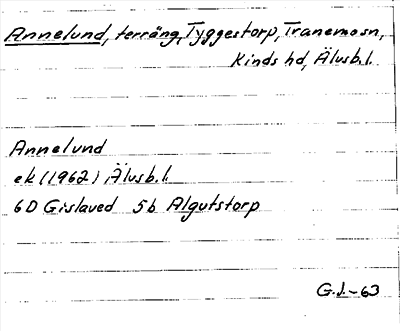 Annelund, terräng, Tyggestorp, Tranemo sn,
Kinds hd, Älvsb. l.
Annelund
ek (1962) Älvsb. l.
6D Gislaved 5b Algutstorp
G.J.-63